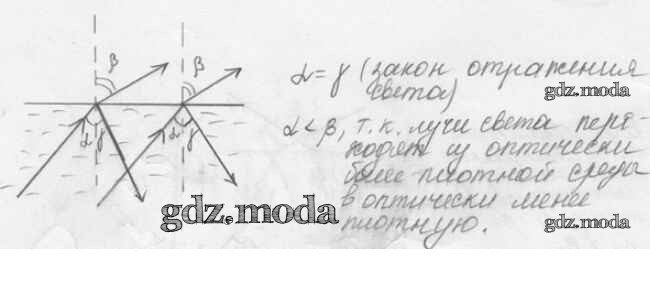 β β
α γ α γ
α = γ (закон отражения
света)
gdz.moda
α < β, т.к. лучи света пере-
ходят из оптически
более плотной среды
в оптически менее
плотную.
gdz.moda
gdz.moda